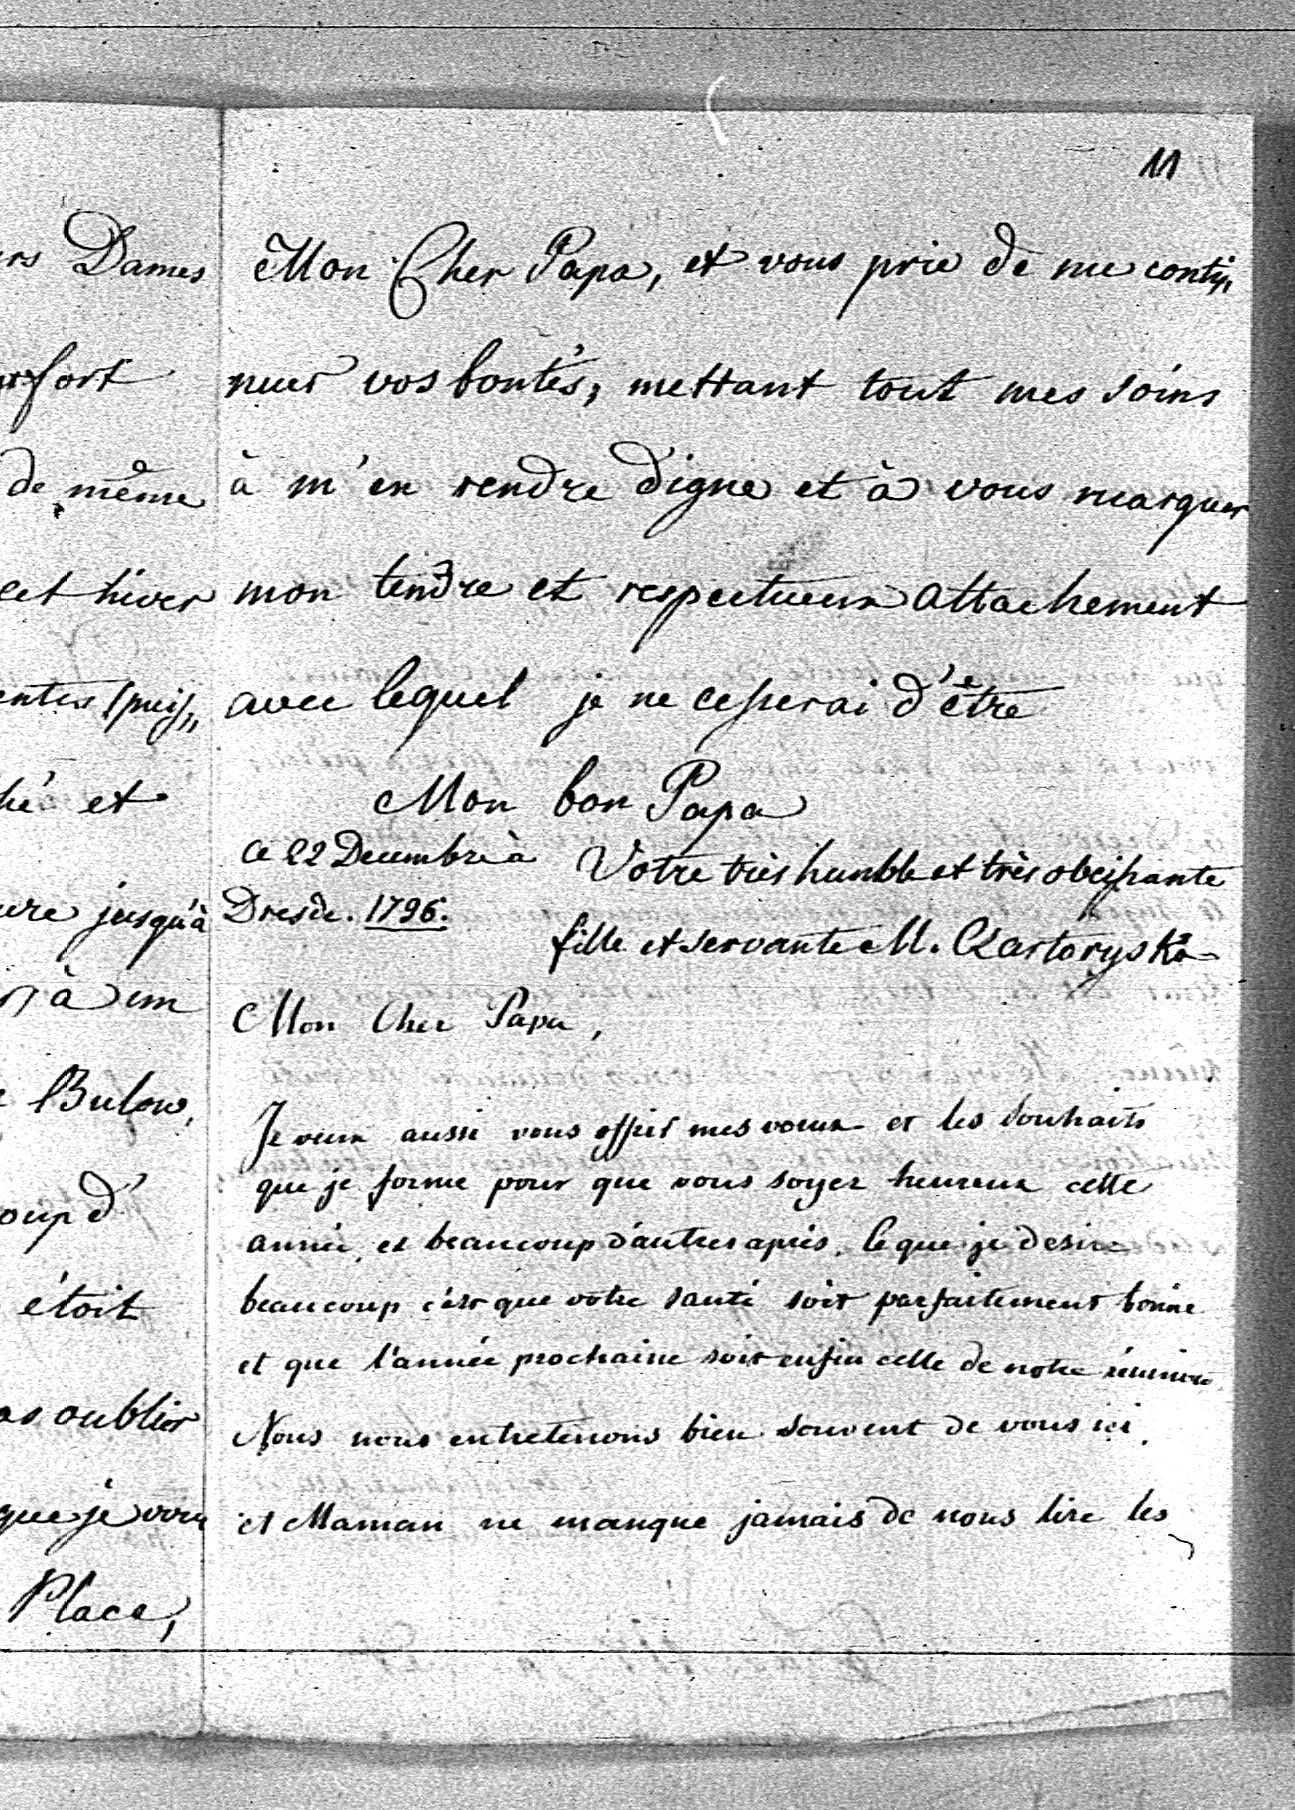 11
Mon Cher Papa, et vous prie de me conti„
nuer vos bontés, mettant tout mes soins
à m'en rendre digne et à vous marquer
mon tendre et respectueux attachement
avec lequel je ne cesserai d'être
Mon bon Papa
ce 22 Decembre à
Dresde. 1796.
Votre très humble et très obeissante
fille et servante M. Czartoryska
Mon Cher Papa,
Je veux aussi vous offrir mes voeux et les souhaits
que je forme pour que vous soyez heureux cette
année, et beaucoup d'autres après. Ce que je desire
beaucoup c'est que votre santé soit parfaitement bonne
et que l'année prochaine soit enfin celle de notre réunion.
Nous nous entretenons bien souvent de vous ici,
et Maman ne manque jamais de nous lire les
Dames
fort
de même
cet hiver
et
jusqu'à
à un
Bulow,
d'
étoit
oublier
que je vous
Place,